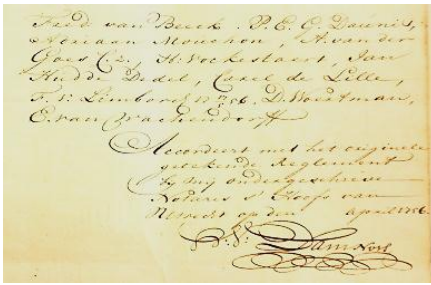 Fred van Beeck. P. E. C. Daunis,
Adriaan Mouchon, A. van der
Goes C. z., H. Vockestaert, Jan
Hudde Dedel, Carel de Lille,
F. v: Limborch 1756. D. Woertman,
E. van Wachendorff
Accordeert met het originele
getekende Reglement
by my ondergeschreve
Notaris s' Hoofs van
Utrecht op den april 1756.
D: V: Dam Nots